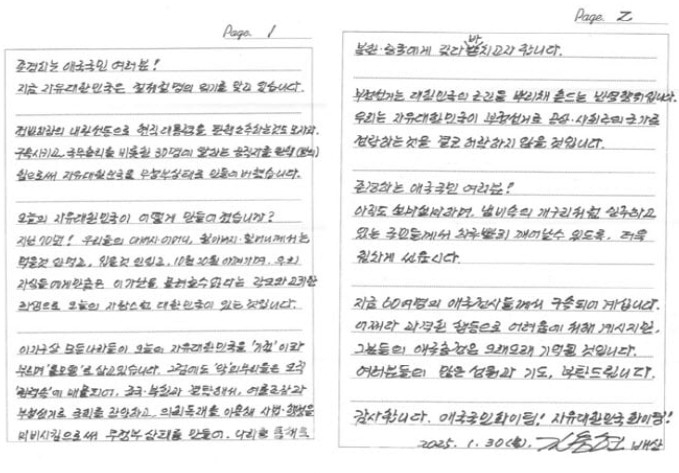 Page. 1
존경하는 애국국민 여러분!
지금 자유대한민국은 절체절명의 위기를 맞고 있습니다.
내란선동으로 현직 대통령을
구속시키고, 국무총리를 비롯한 30명이 공직자를 탄핵
함으로써 자유대한민국을 무정부상태로 만들어 버렸습니다.
오늘의 자유대한민국이 어떻게 만들어 졌습니까?
지난 70년! 우리들의 아버지·어머니, 할아버지·할머니께서는
먹을것 안먹고, 입을것 안입고,
자식들에게만큼은 가난을 물려줄수 없다는 각오와
오늘의 자랑스런 대한민국이 있는 것입니다.
이지구상 모든나라들이 오늘의 자유대한민국을 '기적'이라
부르며 '롤모델'로 삼고있습니다. 그럼에도 '악'의무리들은 오직
중국·북한과 결탁해서, 여론조작과
부정선거로 국회를 장악하고, 의회독재를 사법·행정을
마비시킴으로써 무정부상태를 만들어, 나라를 통째로
Page. 2
북한·중국에게 갖다 바치고자 합니다.
부정선거는 대한민국의 근간을 뿌리채 흔드는 입니다.
우리는 자유대한민국이 부정선거로 공산·사회주의 국가로
전락하는 것을 결코 허락하지 않을 것입니다.
존경하는 애국국민 여러분!
아직도 설마설마하며, 냄비속의 개구리처럼
있는 국민들께서 하루빨리 깨어날수 있도록, 더욱
힘차게 싸웁시다.
지금 60여명의 애국전사들께서 구속되어 계십니다.
어쩌다 과격한 행동으로 어려움에 처해 계시지만,
그분들의 애국충정은 오래오래 기억될 것입니다.
여러분들의 많은 성원과 기도, 부탁드립니다.
감사합니다. 애국국민화이팅! 자유대한민국 화이팅!
2025. 1. 30(목). 김용현